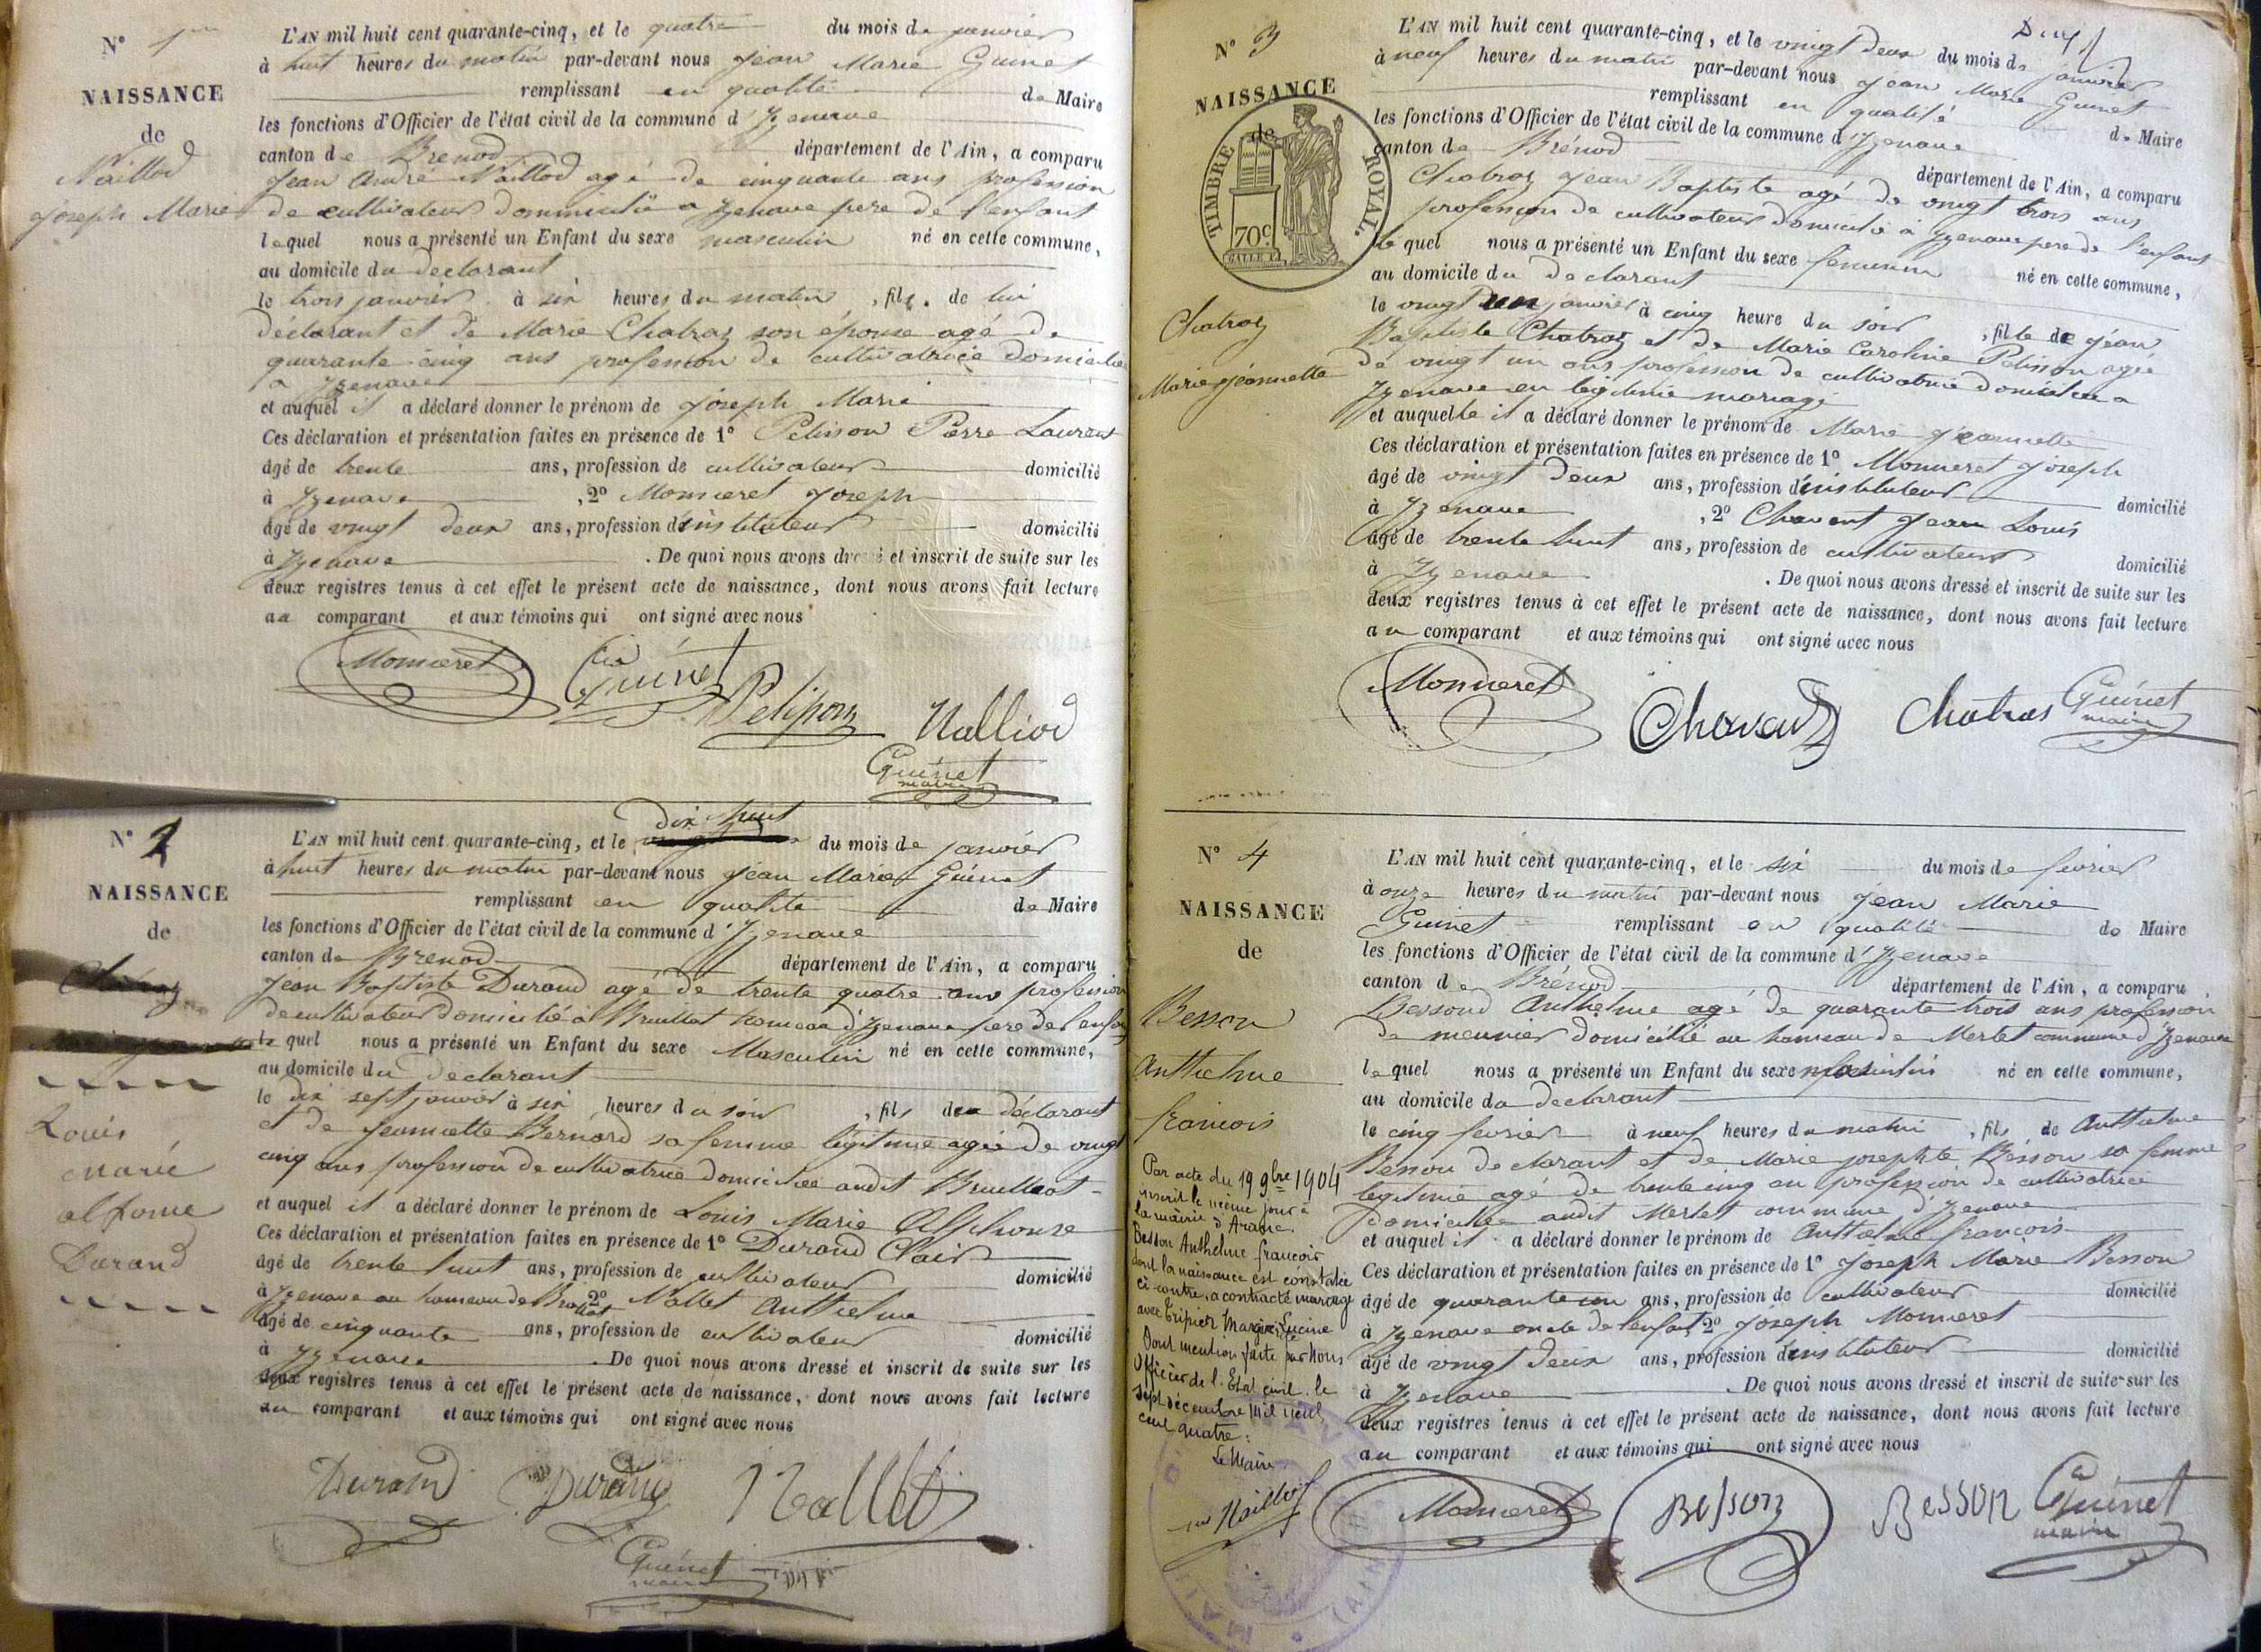 N° 1er
NAISSANCE
de
Naillod
Joseph Marie
L'AN mil huit cent quarante-cinq, et le quatre du mois de janvier
à huit heures du matin par-devant nous Jean Marie Guinet
remplissant en qualité de Maire
les fonctions d'Officier de l'état civil de la commune d'Izenave
canton de Brénod département de l'Ain, a comparu
Jean André Naillod agé de cinquante ans profession
de cultivateur domicilié a Izenave pere de l'enfant
lequel nous a présenté un Enfant du sexe masculin né en cette commune,
au domicile du declarant
le trois janvier à six heures du matin, fils de lui
déclarant et de Marie Chatraz son épouse agé de
quarante cinq ans profession de cultivatrice domiciliée
a Izenave
et auquel il a déclaré donner le prénom de Joseph Marie
Ces déclaration et présentation faites en présence de 1° Pelisson Pierre Laurent
âgé de trente ans, profession de cultivateur domicilié
à Izenave, 2° Monneret Joseph
âgé de vingt deux ans, profession d'instituteur domicilié
à Izenave. De quoi nous avons dressé et inscrit de suite sur les
deux registres tenus à cet effet le présent acte de naissance, dont nous avons fait lecture
au comparant et aux témoins qui ont signé avec nous
Monneret Guinet Pelisson Nalliod
Guinet
maire
N° 2
NAISSANCE
de
Louis
Marie
alfonse
Durand
dix huit
L'AN mil huit cent quarante-cinq, et le du mois de janvier
à huit heures du matin par-devant nous Jean Marie Guinet
remplissant en qualité de Maire
les fonctions d'Officier de l'état civil de la commune d'Izenave
canton de Brenod département de l'Ain, a comparu
Jean Baptiste Durand agé de trente quatre ans profession
de cultivateur domicilié à Bruillat hameau d'Izenave pere de l'enfant
lequel nous a présenté un Enfant du sexe Masculin né en cette commune,
au domicile du declarant
le dix sept janvier à six heures du soir, fils du déclarant
et de Jeannette Bernard sa femme légitime agée de vingt
cinq ans profession de cultivatrice domiciliée audit Bruillat
et auquel il a déclaré donner le prénom de Louis Marie Alphonse
Ces déclaration et présentation faites en présence de 1° Durand Clair
âgé de trente huit ans, profession de cultivateur domicilié
à Izenave au hameau de Brullat 2° Nallet Anthelme
âgé de cinquante ans, profession de cultivateur domicilié
à Izenave. De quoi nous avons dressé et inscrit de suite sur les
deux registres tenus à cet effet le présent acte de naissance, dont nous avons fait lecture
au comparant et aux témoins qui ont signé avec nous
Durand Durand Nallet
Guinet
maire
N° 3
NAISSANCE
de
TIMBRE ROYAL.
70c
Chatraz
Marie Jeannette
L'AN mil huit cent quarante-cinq, et le vingt deux du mois de janvier
à neuf heures du matin par-devant nous Jean Marie Guinet
remplissant en qualité de Maire
les fonctions d'Officier de l'état civil de la commune d'Izenave
canton de Brénod département de l'Ain, a comparu
Chatraz Jean Baptiste agé de vingt trois ans
profession de cultivateur domicilié à Izenave pere de l'enfant
lequel nous a présenté un Enfant du sexe femenin né en cette commune,
au domicile du declarant
le vingt un janvier à cinq heure du soir, fille de Jean
Baptiste Chatraz et de Marie Caroline Pelisson agée
de vingt un ans profession de cultivatrice domiciliée a
Izenave en legitime mariage
et auquelle il a déclaré donner le prénom de Marie Jeannette
Ces déclaration et présentation faites en présence de 1° Monneret Joseph
âgé de vingt deux ans, profession d'instituteur domicilié
à Izenave, 2° Chavent Jean Louis
âgé de trente huit ans, profession de cultivateur domicilié
à Izenave. De quoi nous avons dressé et inscrit de suite sur les
deux registres tenus à cet effet le présent acte de naissance, dont nous avons fait lecture
au comparant et aux témoins qui ont signé avec nous
Monneret Chavent Chatras Guinet
maire
N° 4
NAISSANCE
de
Besson
Anthelme
francois
Par acte du 19 9bre 1904
inscrit le même jour à
la mairie d'Aranc.
Besson Anthelme françois
dont la naissance est constatée
ci-contre, a contracté mariage
avec Tripier Lucine
Dont mention faite par Nous
Officier de l'Etat civil. le
sept décembre mil neuf
cent quatre:
Le Maire
Naillod
L'AN mil huit cent quarante-cinq, et le six du mois de fevrier
à onze heures du matin par-devant nous Jean Marie
Guinet remplissant en qualité de Maire
les fonctions d'Officier de l'état civil de la commune d'Izenave
canton de Brénod département de l'Ain, a comparu
Bessond Anthelme agé de quarante trois ans profession
de meunier domicilié au hameau de Mertet commune d'Izenave
lequel nous a présenté un Enfant du sexe masculin né en cette commune,
au domicile du declarant
le cinq fevrier à neuf heures du matin, fils de Anthelme
Besson declarant et de Marie josephte Besson sa femme
legitime agé de trente cinq an profession de cultivatrice
domiciliée audit Mertet commune d'Izenave
et auquel il a déclaré donner le prénom de Anthelme francois
Ces déclaration et présentation faites en présence de 1° Joseph Marie Besson
âgé de quarante un ans, profession de cultivateur domicilié
à Izenave oncle de l'enfant, 2° Joseph Monneret
âgé de vingt deux ans, profession d'instituteur domicilié
à Izenave. De quoi nous avons dressé et inscrit de suite sur les
deux registres tenus à cet effet le présent acte de naissance, dont nous avons fait lecture
au comparant et aux témoins qui ont signé avec nous
Monneret Besson Besson Guinet
maire